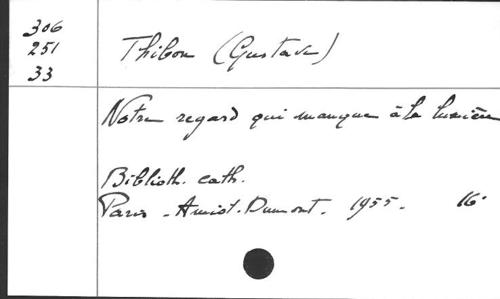 306
251
33
Thibon (Gustave)
Notre regard qui manque à la lumière
Biblioth. cath.
Paris - Amiot-Dumont. 1955. 16°